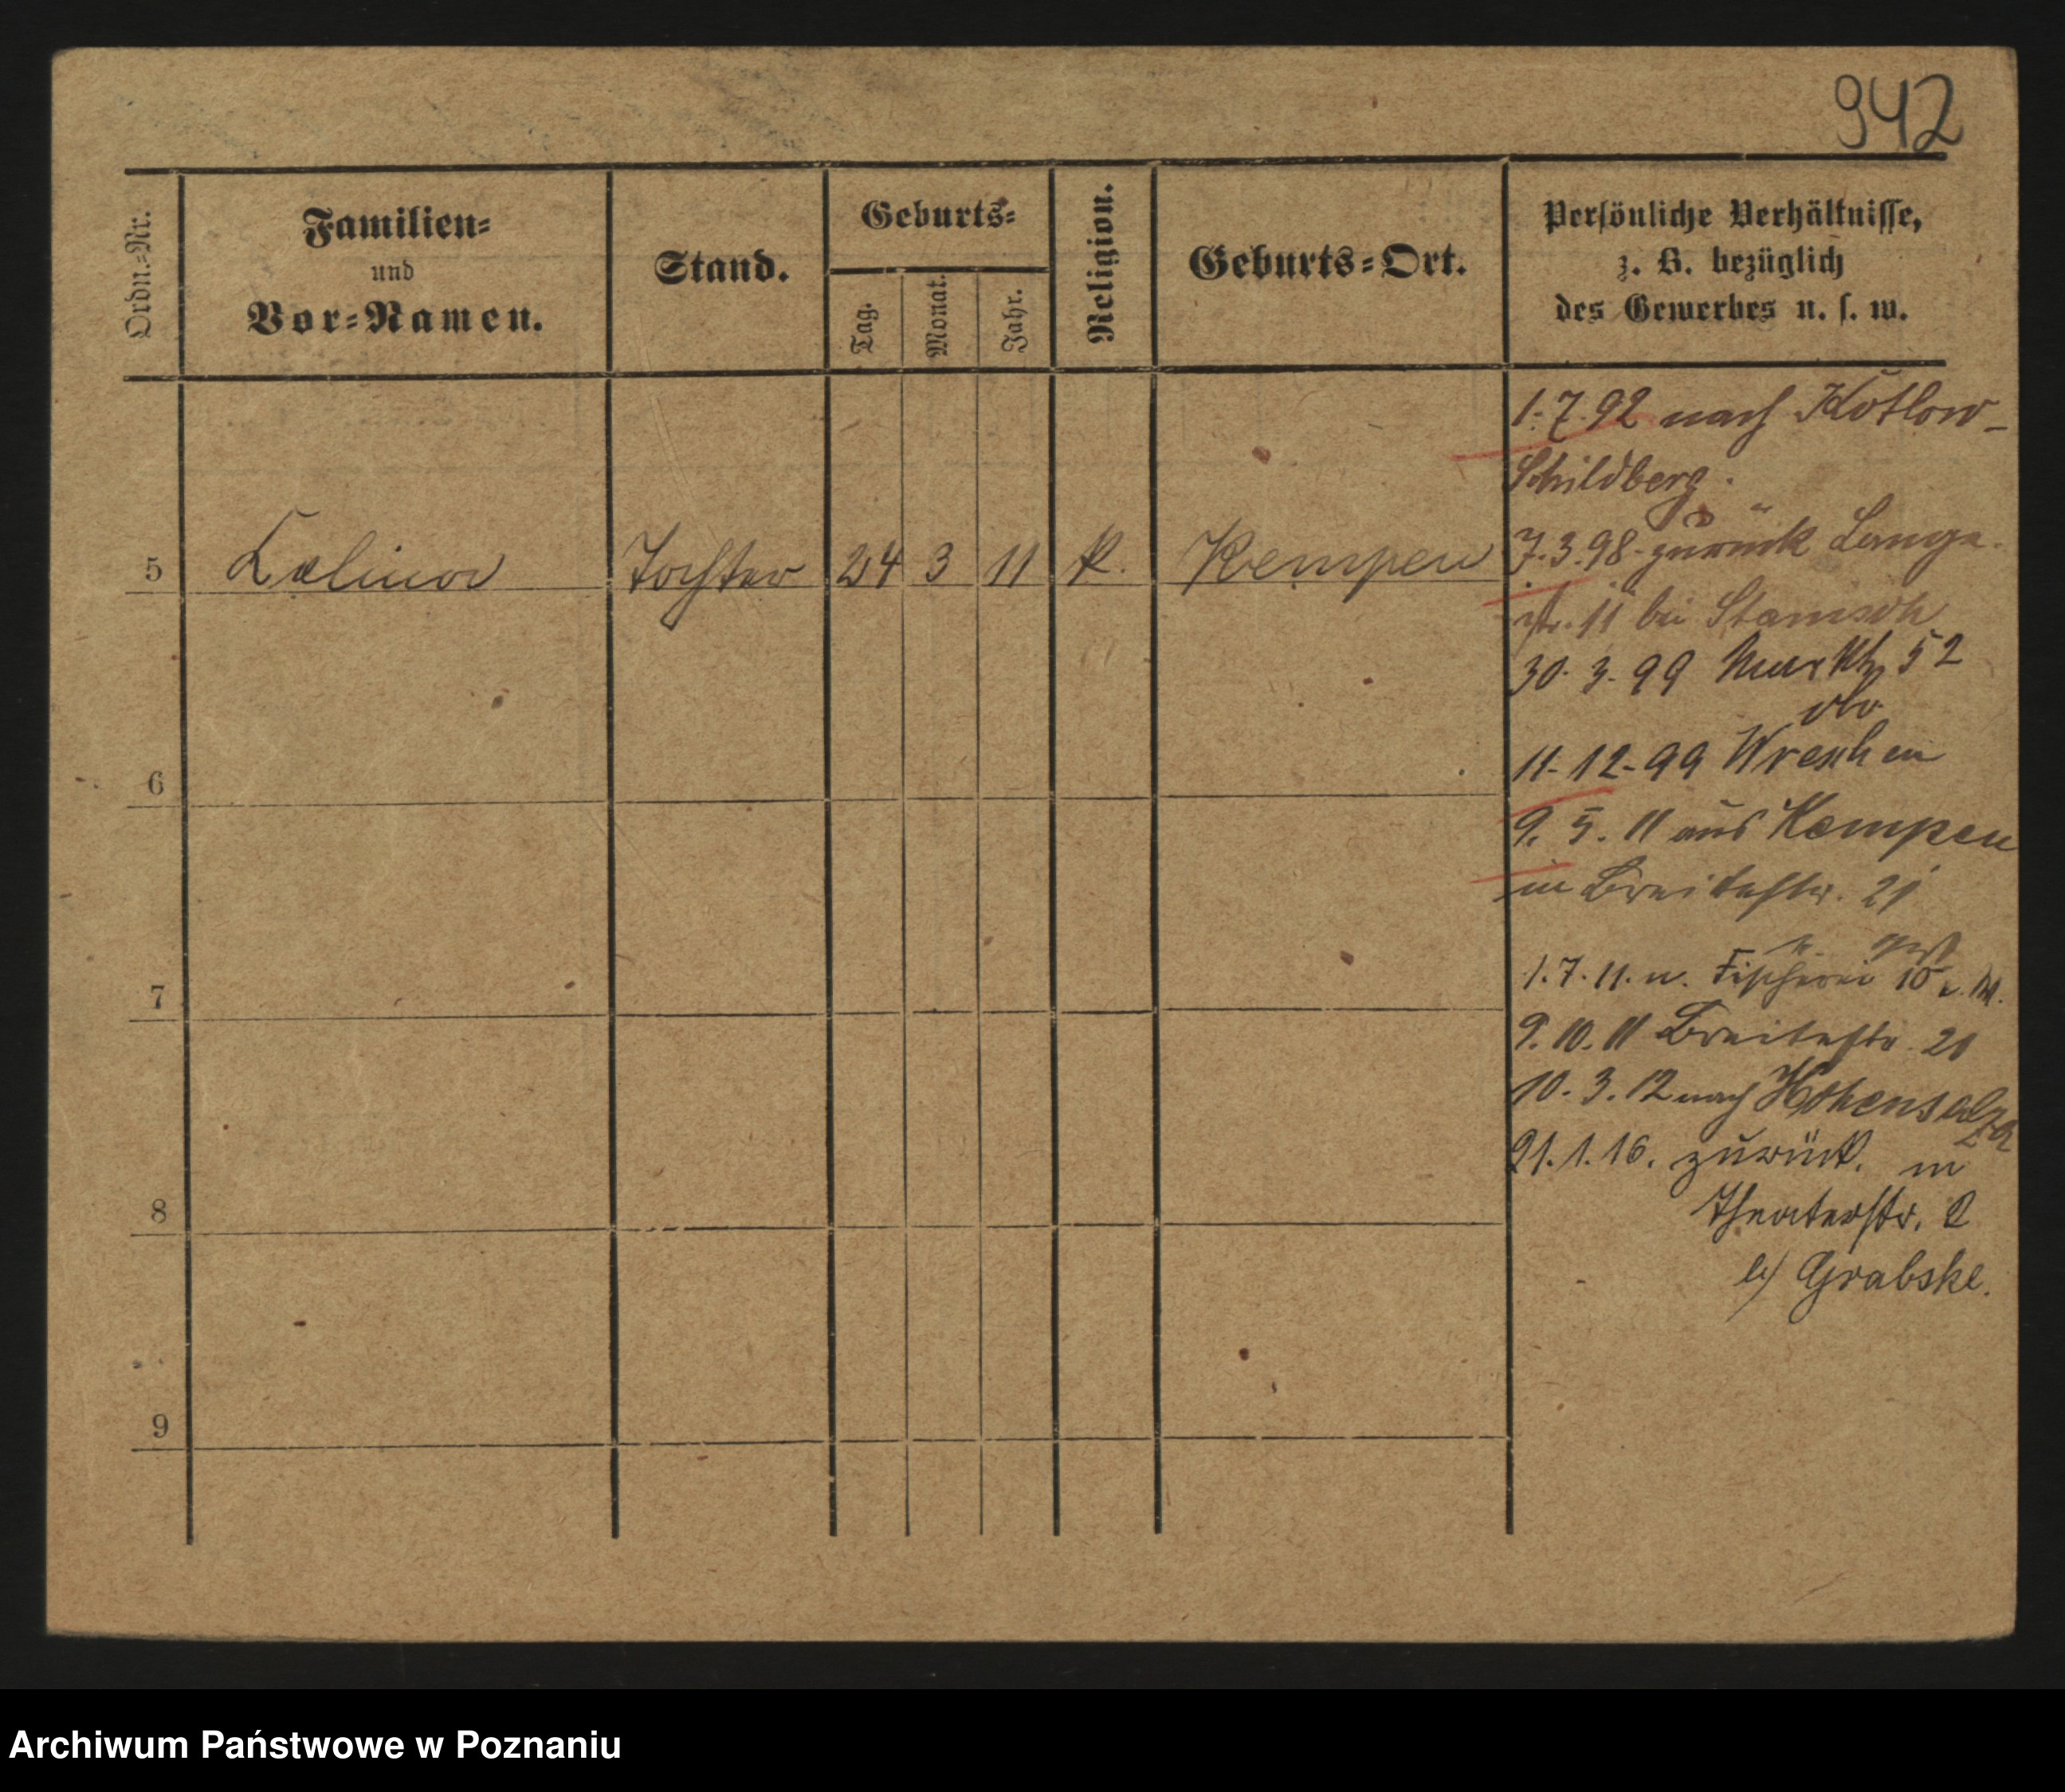 942
Ordn.-Nr.
Familien-
und
Vor-Namen.
Stand.
Geburts-
Tag.
Monat.
Jahr.
Religion.
Geburts-Ort.
Persönliche Verhältnisse,
z. B. bezüglich
des Gewerbes u. s. w.
1.7.92 nach Kotlow-
Schildberg.
7.3.98 zurück Lange-
str. 11 bei
5 Tochter 24 3 11 K. Kempen
30.3.99 Markt 52
11.12.99 Wreschen
9.5.11 aus Kempen
in Breitestr. 21
1.7.11. n. Fischerei 10
9.10.11 Breitestr. 21
10.3.12 nach Hohensalza
21.1.16. zurück. in
Theaterstr. 2
b/ Grabske.
6
7
8
9
Archiwum Państwowe w Poznaniu